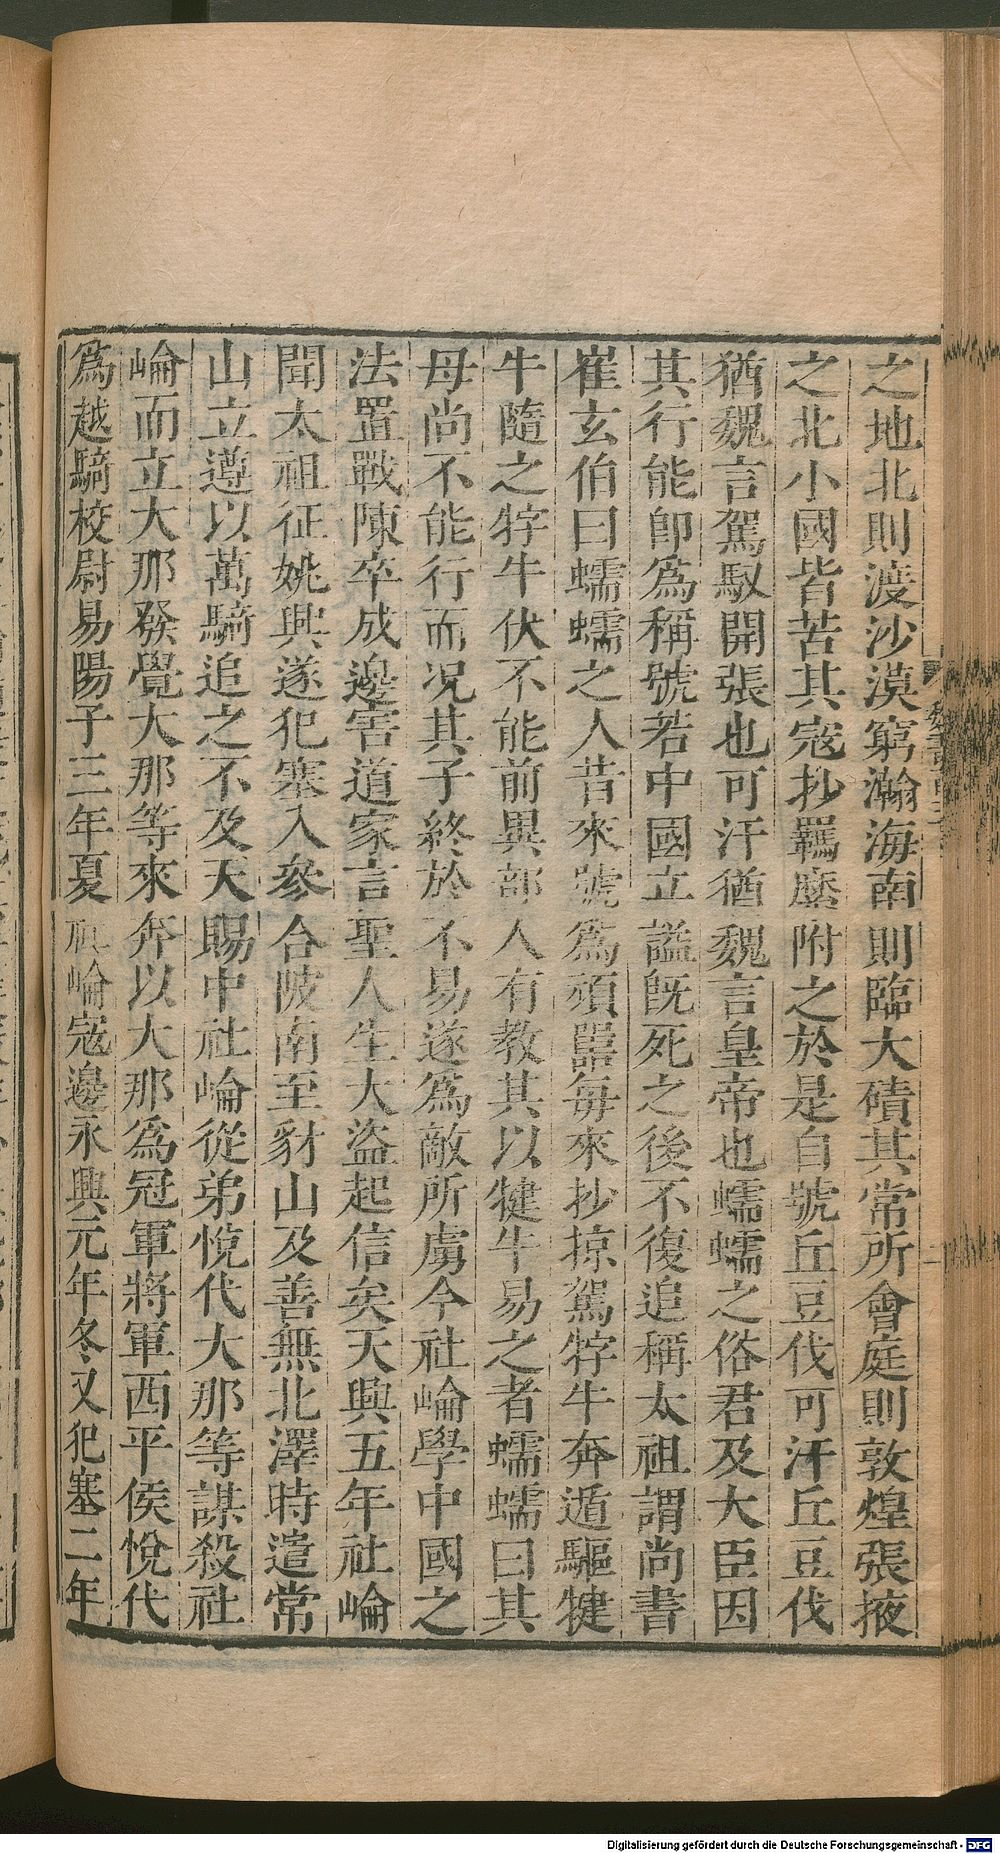 之地北則渡沙漠窮瀚海南則臨大磧其常所會庭則敦煌張掖
之北小國皆苦其寇抄羈縻附之於是自號丘豆伐可汗丘豆伐
猶魏言駕馭開張也可汗猶魏言皇帝也蠕蠕之俗君及大臣因
其行能卽爲稱號若中國立謚旣死之後不復追稱太祖謂尚書
崔玄伯曰蠕蠕之人昔來號爲頑嚚每來抄掠駕牸牛奔遁驅犍
牛隨之牸牛伏不能前異部人有教其以犍牛易之者蠕蠕曰其
母尚不能行而况其子終於不易遂爲敵所虜今社崘學中國之
法置戰陳卒成邊害道家言聖人生大盜起信矣天興五年社崘
聞太祖征姚興遂犯塞入參合陂南至豺山及善無北澤時遣常
山立遵以萬騎追之不及天賜中社崘從弟悅代大那等謀殺社
崘而立大那發覺大那等來奔以大那爲冠軍將軍西平侯悅代
爲越騎校尉易陽子三年夏社崘寇邊永興元年冬又犯塞二年
Digitalisierung gefördert durch die Deutsche Forschungsgemeinschaft - DFG